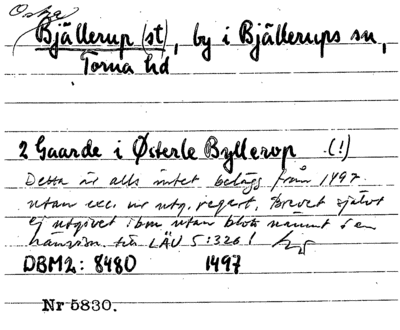 Östra
Bjällerup (st), by i Bjällerups sn,
Torna hd
2 Gaarde i Østerle Byllerop (!)
Detta är alls intet belägg från 1497
utan exc. ur utg. regest. Brevet självt
ej utgivet ibm utan blott nämnt i en
hänvisn. till LÄU 5:326!
DBM2: 8480 1497
Nr 5830.